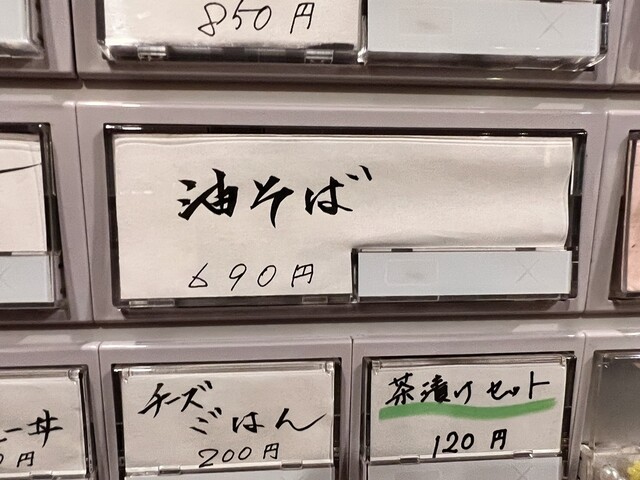 850円
油そば
690円
チーズ
ごはん
200円
茶漬けセット
120円
ー丼
0円